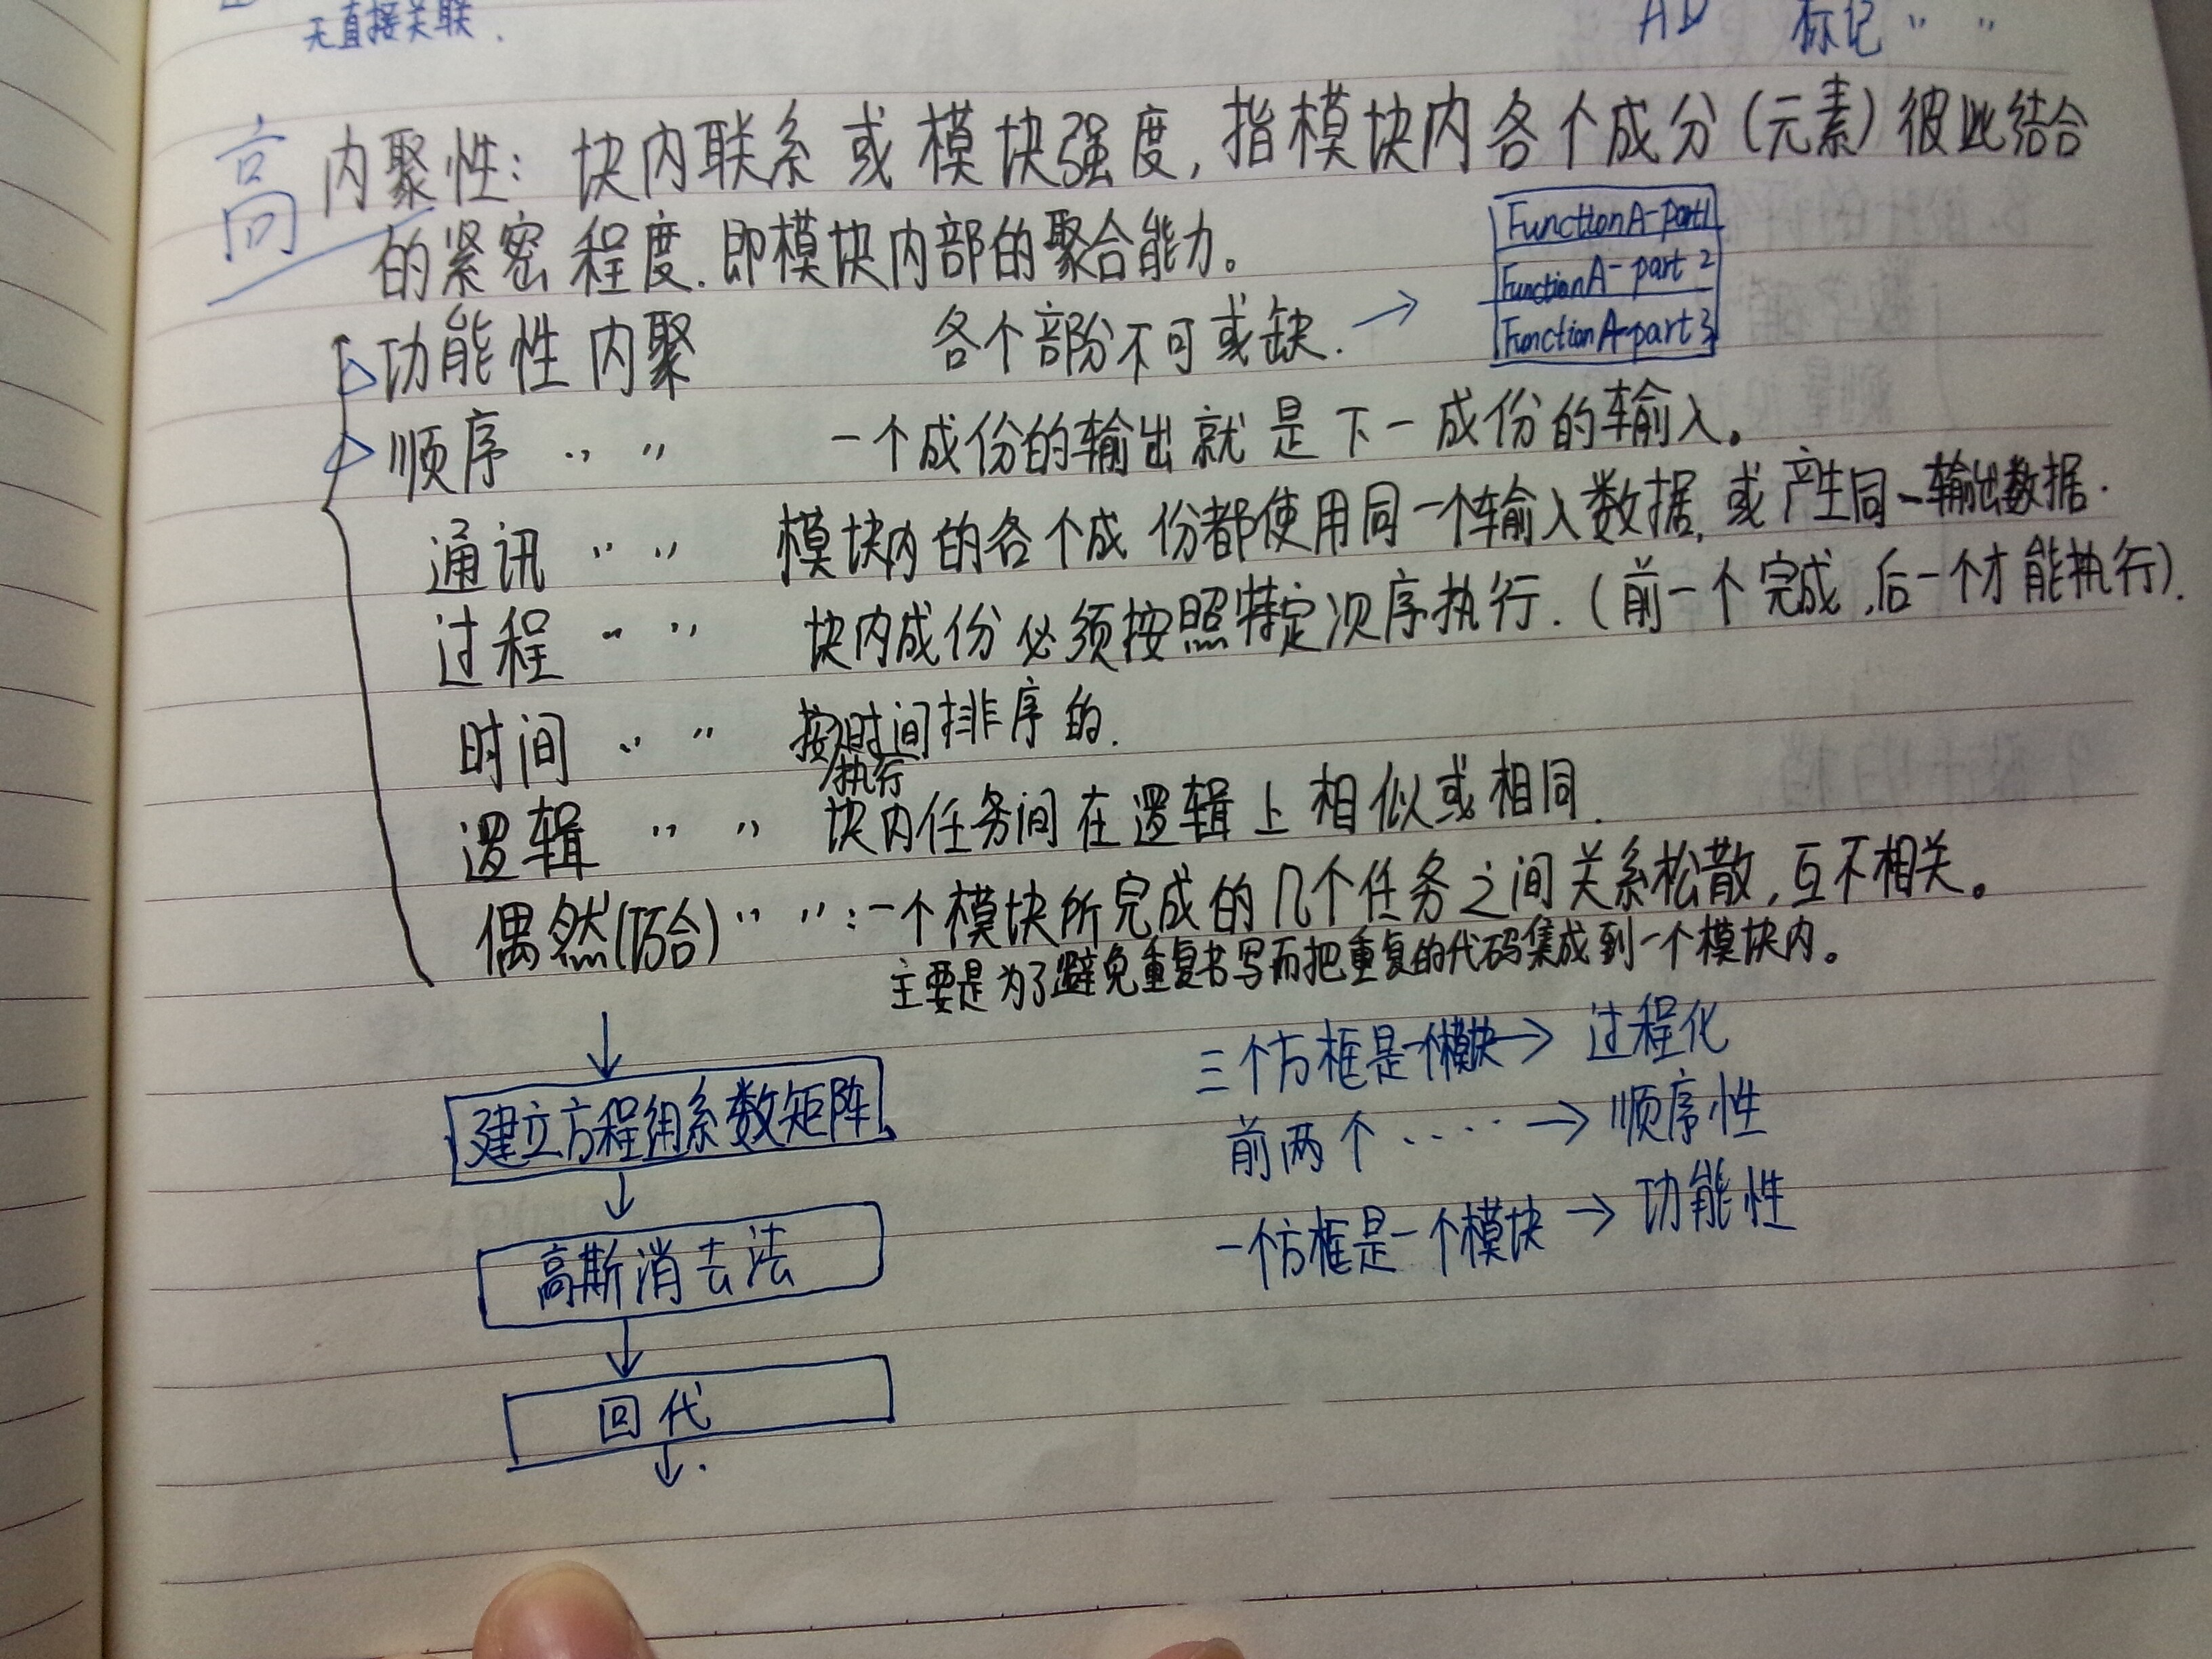 无直接关联.
AD 标记 〃 〃
高
内聚性: 块内联系 或 模块强度, 指模块内各个成分(元素)彼此结合
的紧密程度. 即模块内部的聚合能力。
FunctionA-part1
FunctionA-part 2
FunctionA-part3
功能性内聚 各个部份不可或缺. →
顺序 〃 〃 一个成份的输出就是下一成份的输入。
通讯 〃 〃 模块内的各个成份都使用同一个输入数据, 或产生同一输出数据.
过程 〃 〃 块内成份必须按照特定次序执行. (前一个完成,后一个才能执行).
时间 〃 〃 按时间排序的.
执行
逻辑 〃 〃 块内任务间在逻辑上相似或相同.
偶然(巧合) 〃 〃 : 一个模块所完成的几个任务之间关系松散, 互不相关。
主要是为了避免重复书写而把重复的代码集成到一个模块内。
三个方框是一个模块→ 过程化
建立方程组系数矩阵
前两个 ····· → 顺序性
一个方框是一个模块 → 功能性
高斯消去法
回代